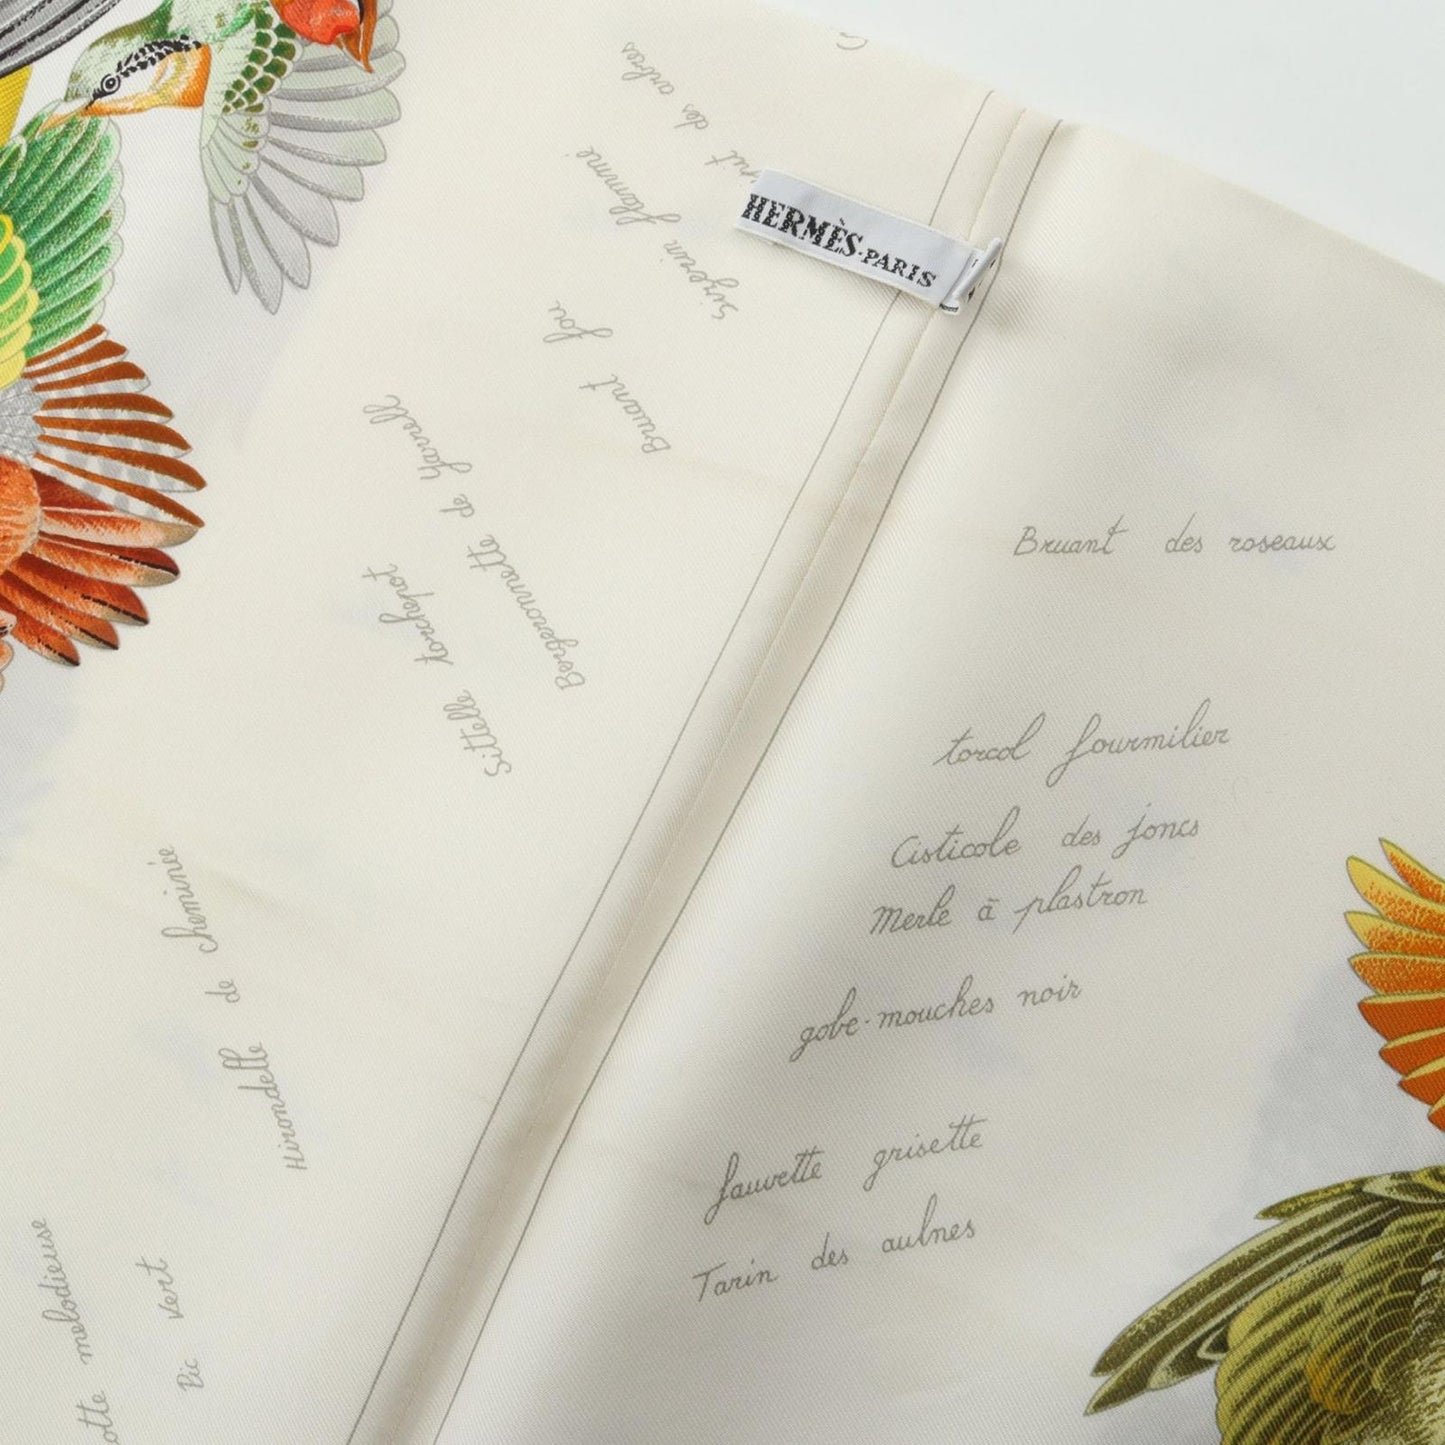 des arbres
Sizerin flammé
HERMÈS-PARIS
Bruant fou
Bergeronnette de Yarrell
Sittelle torchepot
Hirondelle de cheminée
melodieuse
Pic vert
Bruant des roseaux
torcol fourmilier
Cisticole des joncs
Merle à plastron
gobe-mouches noir
fauvette grisette
Tarin des aulnes